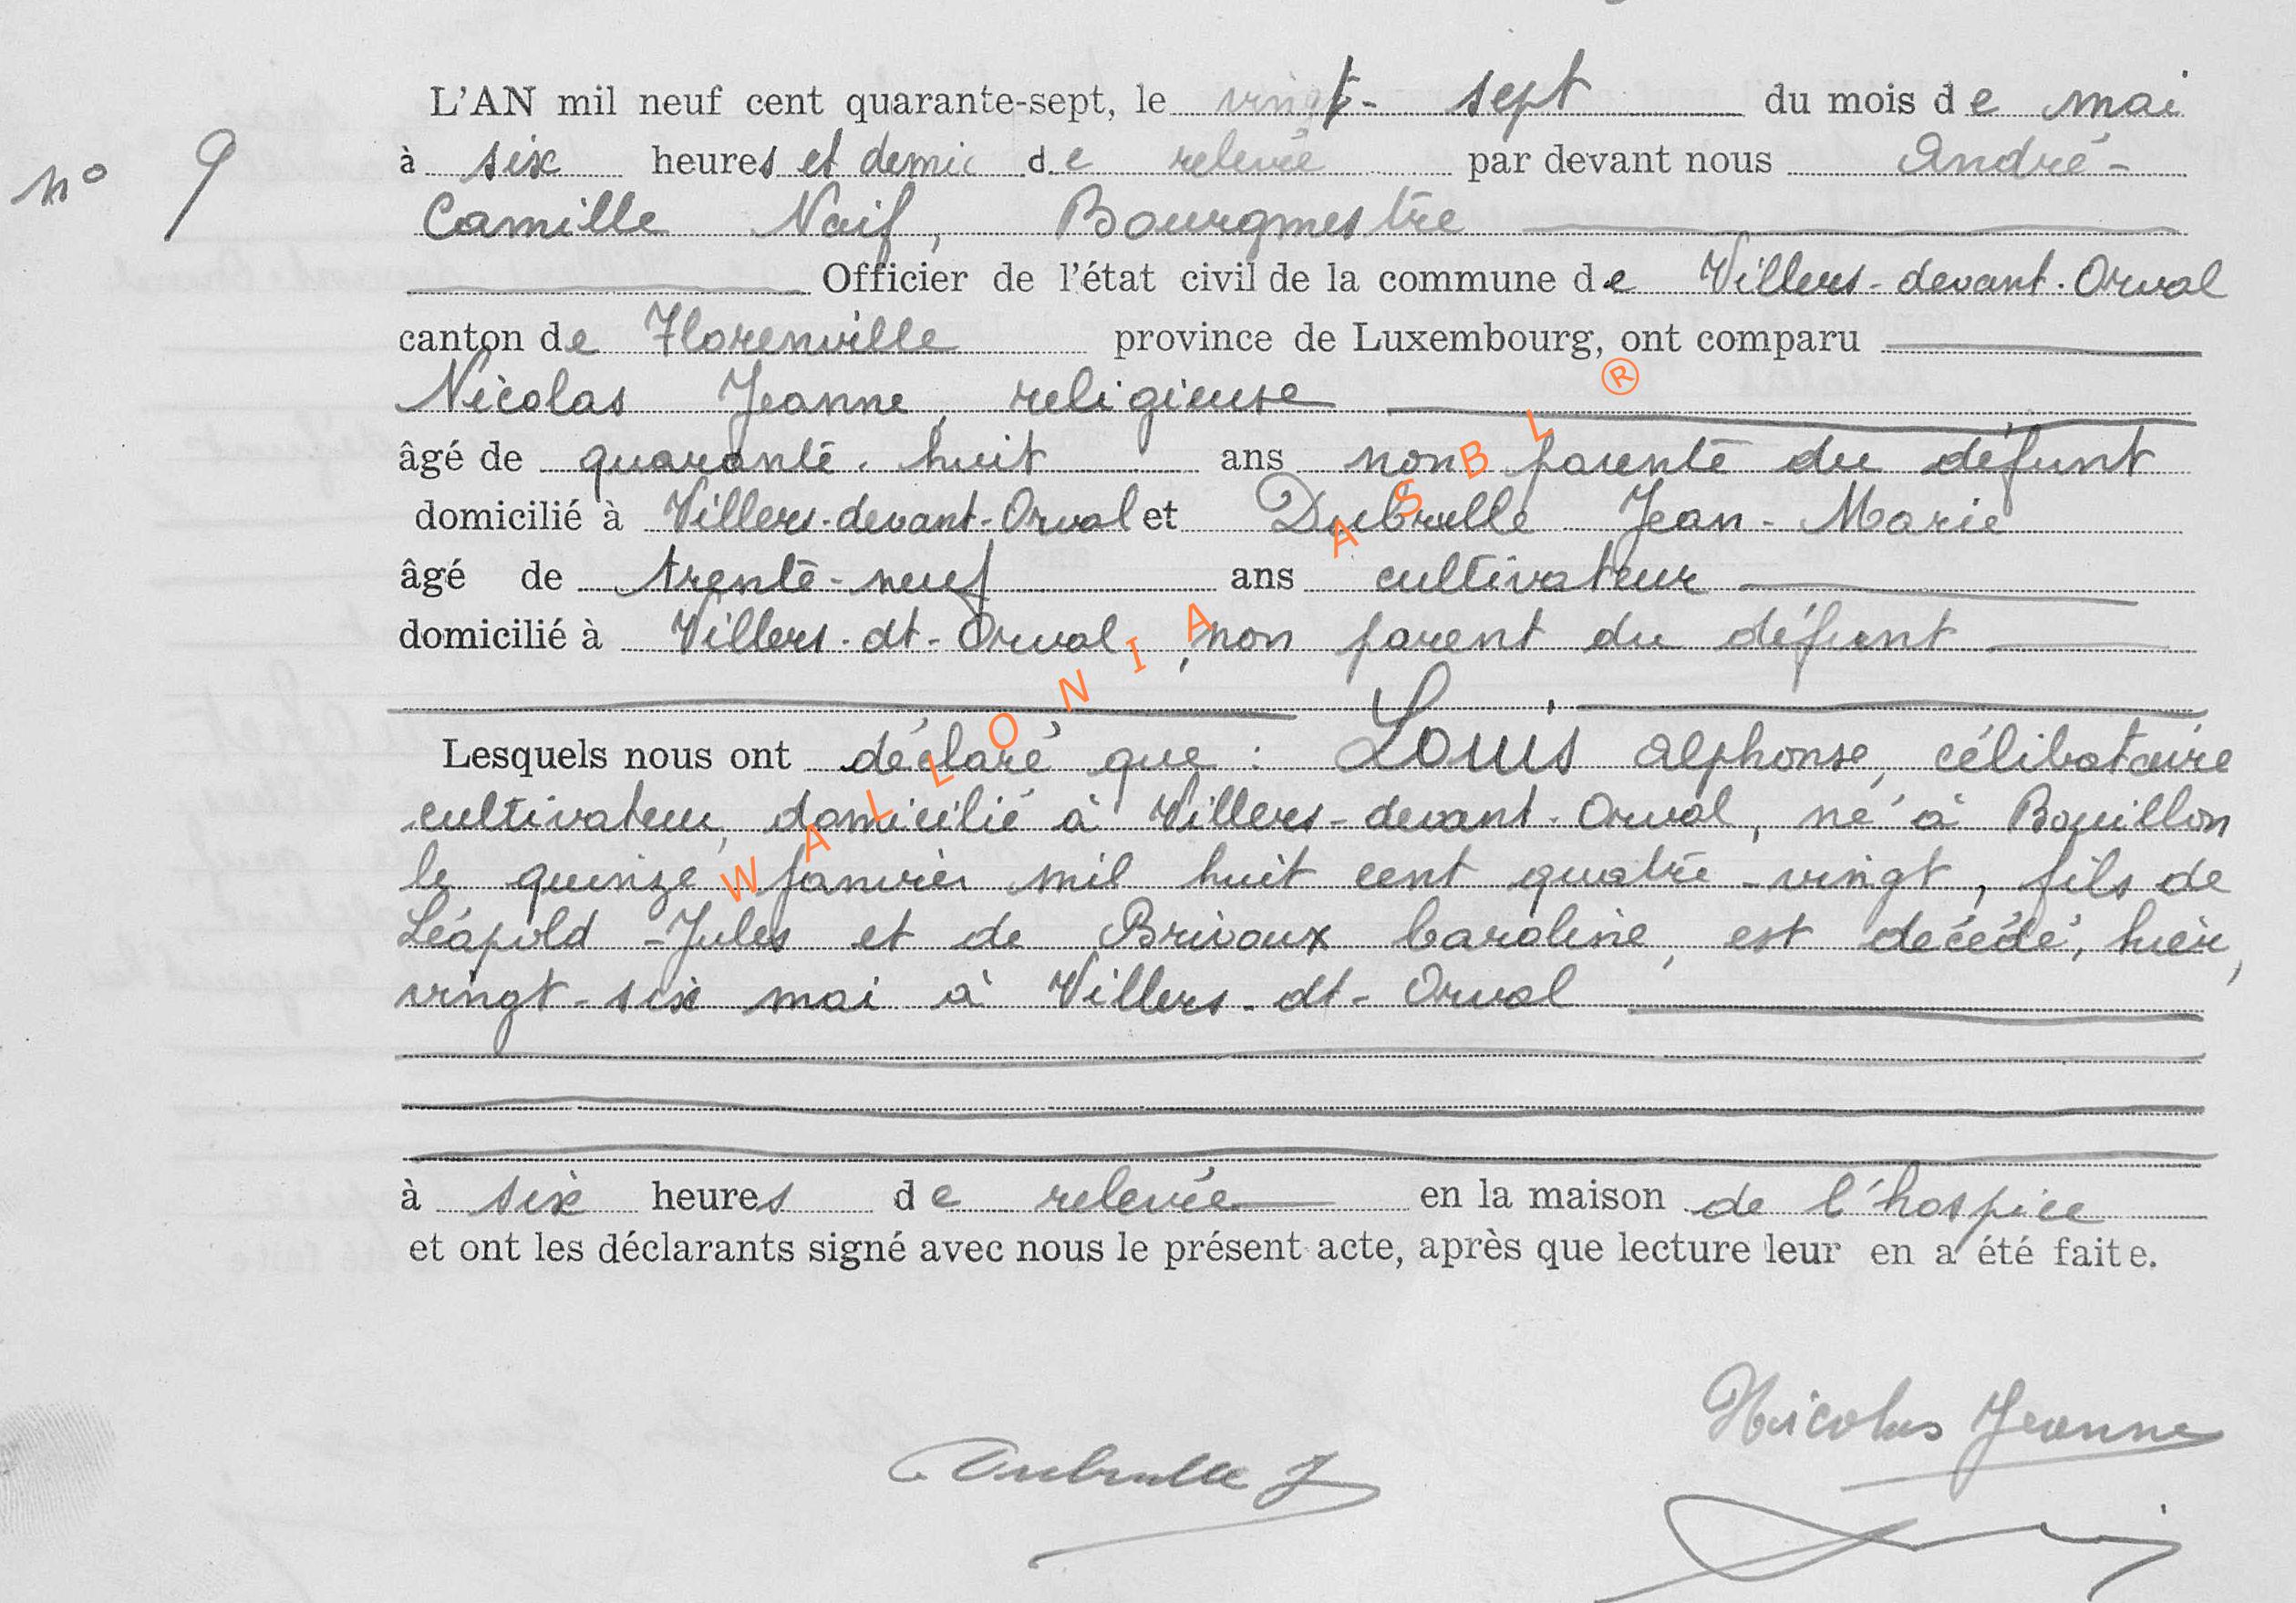 L'AN mil neuf cent quarante-sept, le vingt-sept du mois de mai
n° 9 à six heures et demie de relevée par devant nous André-
Camille Naif, Bourgmestre
Officier de l'état civil de la commune de Villers-devant-Orval
canton de Florenville province de Luxembourg, ont comparu
Nicolas Jeanne, religieuse
âgé de quarante-huit ans non parente du défunt
domicilié à Villers-devant-Orval et Dubrulle Jean-Marie
âgé de trente-neuf ans cultivateur
domicilié à Villers-dt-Orval, non parent du défunt
Lesquels nous ont déclaré que : Louis Alphonse, célibataire
cultivateur, domicilié à Villers-devant-Orval, né à Bouillon
le quinze janvier mil huit cent quatre-vingt, fils de
Léopold-Jules et de Brivaux Caroline, est décédé, hier,
vingt-six mai à Villers-dt-Orval
à six heures de relevée en la maison de l'hospice
et ont les déclarants signé avec nous le présent acte, après que lecture leur en a été faite.
Nicolas Jeanne
Dubrulle J
WALLONIA ASBL ®